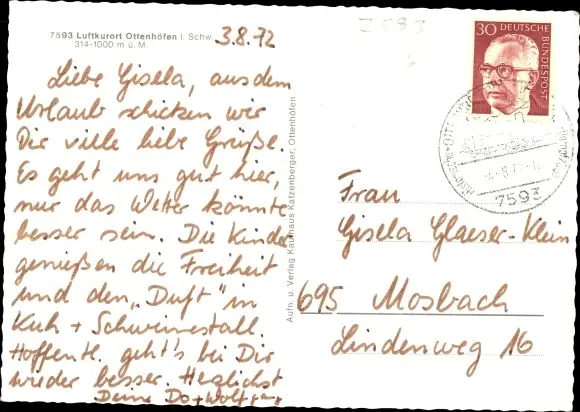 7593 Luftkurort Ottenhöfen i. Schw.
314-1000 m ü. M.
3.8.72
Liebe Gisela, aus dem
Urlaub schicken wir
Dir viele liebe Grüße.
Es geht uns gut hier,
nur das Wetter könnte
besser sein. Die Kinder
genießen die Freiheit
und den „Duft" in
Kuh + Schweinestall.
Hoffentl. geht's bei Dir
wieder besser. Herzlichst
Deine Do + Wolfgang
Aufn. u. Verlag Kaufhaus Katzenberger, Ottenhöfen
7593
30 DEUTSCHE
BUNDESPOST
7593
Frau
Gisela Glaeser-Klein
695 Mosbach
Lindenweg 16